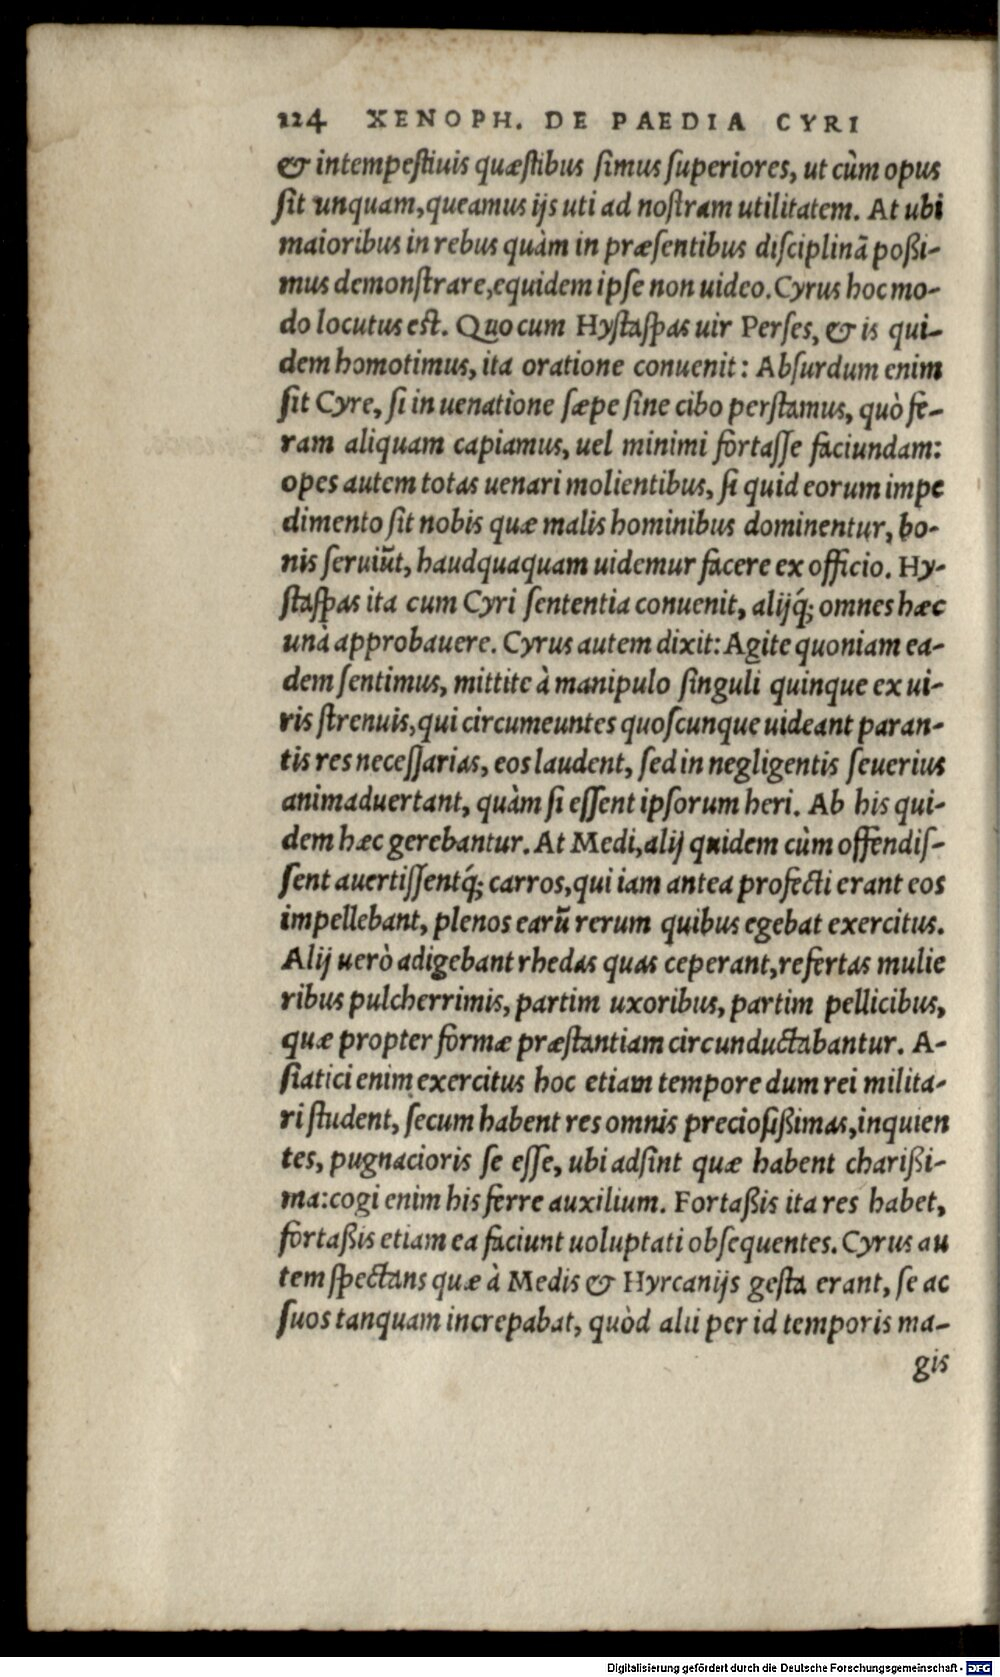 124 XENOPH. DE PAEDIA CYRI
& intempeſtiuis quæſtibus ſimus ſuperiores, ut cùm opus
ſit unquam, queamus ijs uti ad noſtram utilitatem. At ubi
maioribus in rebus quàm in præſentibus diſciplinā poßi-
mus demonſtrare, equidem ipſe non uideo. Cyrus hoc mo-
do locutus eſt. Quo cum Hyſtaſpas uir Perſes, & is qui-
dem homotimus, ita oratione conuenit: Abſurdum enim
ſit Cyre, ſi in uenatione ſæpe ſine cibo perſtamus, quò fe-
ram aliquam capiamus, uel minimi fortaſſe faciundam:
opes autem totas uenari molientibus, ſi quid eorum impe
dimento ſit nobis quæ malis hominibus dominentur, bo-
nis ſeruiūt, haudquaquam uidemur facere ex officio. Hy-
ſtaſpas ita cum Cyri ſententia conuenit, alijq́; omnes hæc
unà approbauere. Cyrus autem dixit: Agite quoniam ea-
dem ſentimus, mittite à manipulo ſinguli quinque ex ui-
ris ſtrenuis, qui circumeuntes quoſcunque uideant paran-
tis res neceſſarias, eos laudent, ſed in negligentis ſeuerius
animaduertant, quàm ſi eſſent ipſorum heri. Ab his qui-
dem hæc gerebantur. At Medi, alij quidem cùm offendiſ-
ſent auertiſſentq́; carros, qui iam antea profecti erant eos
impellebant, plenos earū rerum quibus egebat exercitus.
Alij uerò adigebant rhedas quas ceperant, refertas mulie
ribus pulcherrimis, partim uxoribus, partim pellicibus,
quæ propter formæ præſtantiam circunductabantur. A-
ſiatici enim exercitus hoc etiam tempore dum rei milita-
ri ſtudent, ſecum habent res omnis precioſißimas, inquien
tes, pugnacioris ſe eſſe, ubi adſint quæ habent charißi-
ma: cogi enim his ferre auxilium. Fortaßis ita res habet,
fortaßis etiam ea faciunt uoluptati obſequentes. Cyrus au
tem ſpectans quæ à Medis & Hyrcanijs geſta erant, ſe ac
ſuos tanquam increpabat, quòd alii per id temporis ma-
gis
Digitalisierung gefördert durch die Deutsche Forschungsgemeinschaft - DFG